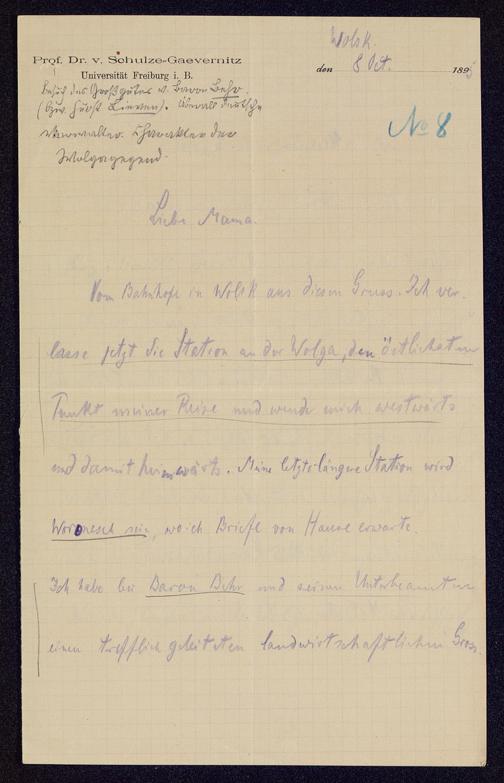 Prof. Dr. v. Schulze-Gaevernitz
Universität Freiburg i. B.
Wolsk.
den 8 Oct. 189
Besuch des Großgutes v. Baron Behr.
(bzw. Fürst Lieven). Überall deutsche
Verwalter. Charakter der
Wolgagegend.
No 8
Liebe Mama.
Vom Bahnhofe in Wolsk aus diesen Gruss. Ich ver-
lasse jetzt die Station an der Wolga, den östlichsten
Punkt meiner Reise und wende mich westwärts
und damit heimwärts. Meine letzte längere Station wird
Woronesch sein, wo ich Briefe von Hause erwarte.
Ich habe bei Baron Behr und seinen Unterbeamten
einen trefflich geleiteten landwirtschaftlichen Gross-